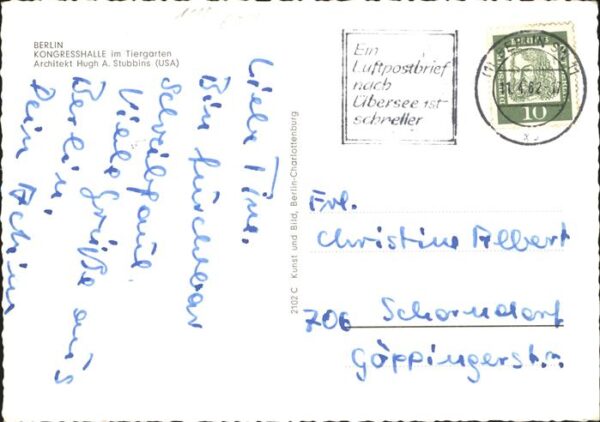 BERLIN
KONGRESSHALLE im Tiergarten
Architekt Hugh A. Stubbins (USA)
Liebe Tine.
Bin furchtbar
schreibfaul.
Viele Grüße aus
Berlin,
Dein Achim
2102 C Kunst und Bild, Berlin-Charlottenburg
Ein
Luftpostbrief
nach
Übersee ist
schneller
10
Frl.
Christine Albert
706 Schorndorf
Göppingerstr.